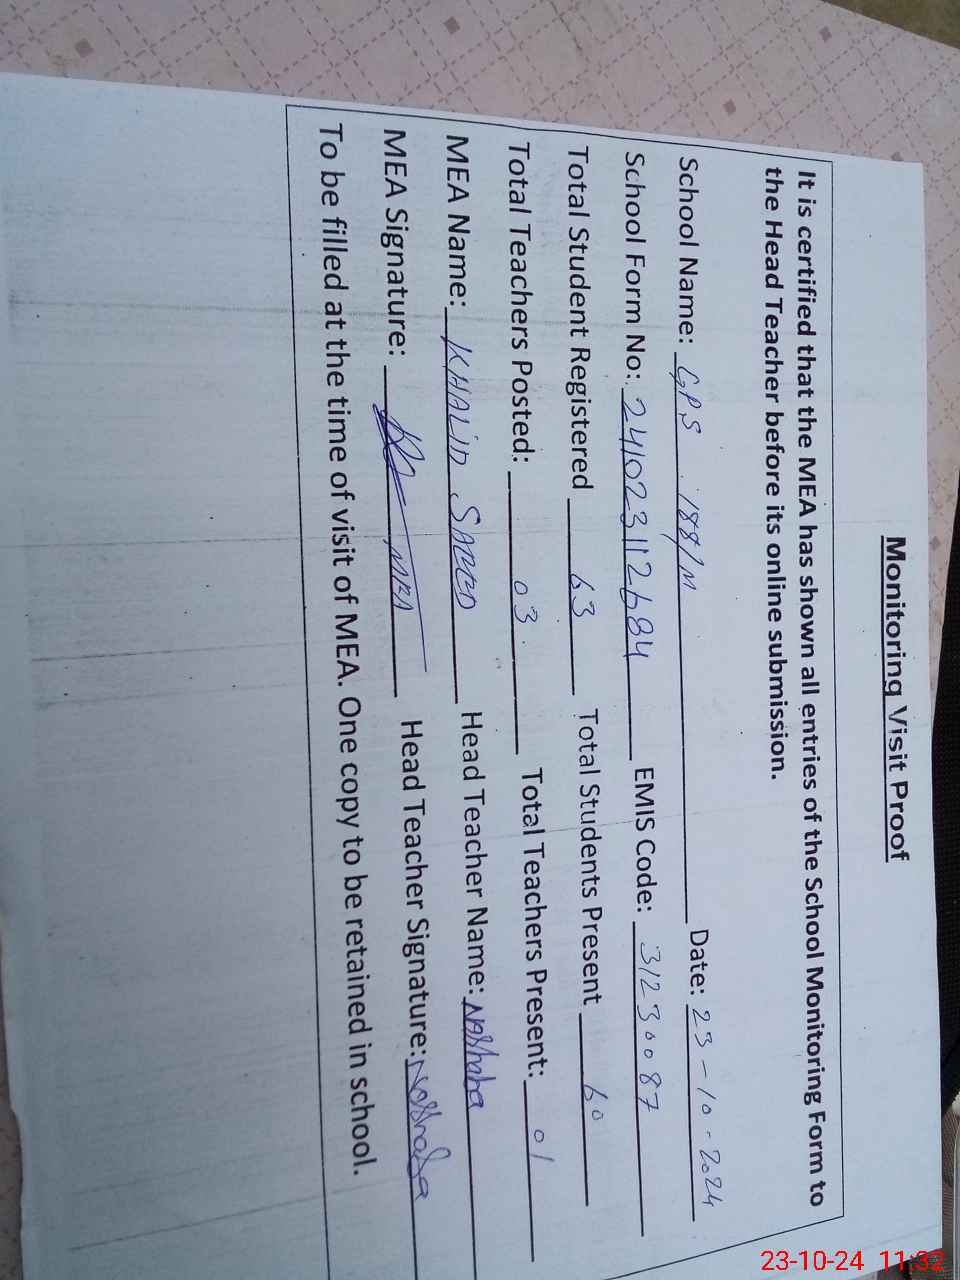 Monitoring Visit Proof
It is certified that the MEA has shown all entries of the School Monitoring Form to
the Head Teacher before its online submission.
School Name: GPS 188/M Date: 23-10-2024
School Form No: 241023112684 EMIS Code: 31230087
Total Student Registered 63 Total Students Present 60
Total Teachers Posted: 03 Total Teachers Present: 01
MEA Name: KHALID SAEED Head Teacher Name: Nashaba
MEA Signature: MEA Head Teacher Signature:
To be filled at the time of visit of MEA. One copy to be retained in school.
23-10-24 11:32